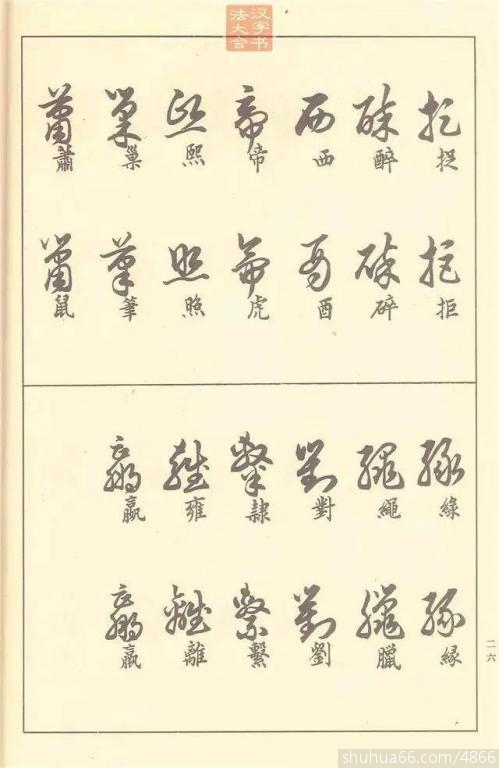 汉字书
法大会
捉 醉 西 帝 熙 巢 簫
拒 碎 酉 虎 照 筆 鼠
綠 繩 對 隷 雍 嬴
緣 臘 劉 繫 離 羸
二六
shuhua66.com/4866